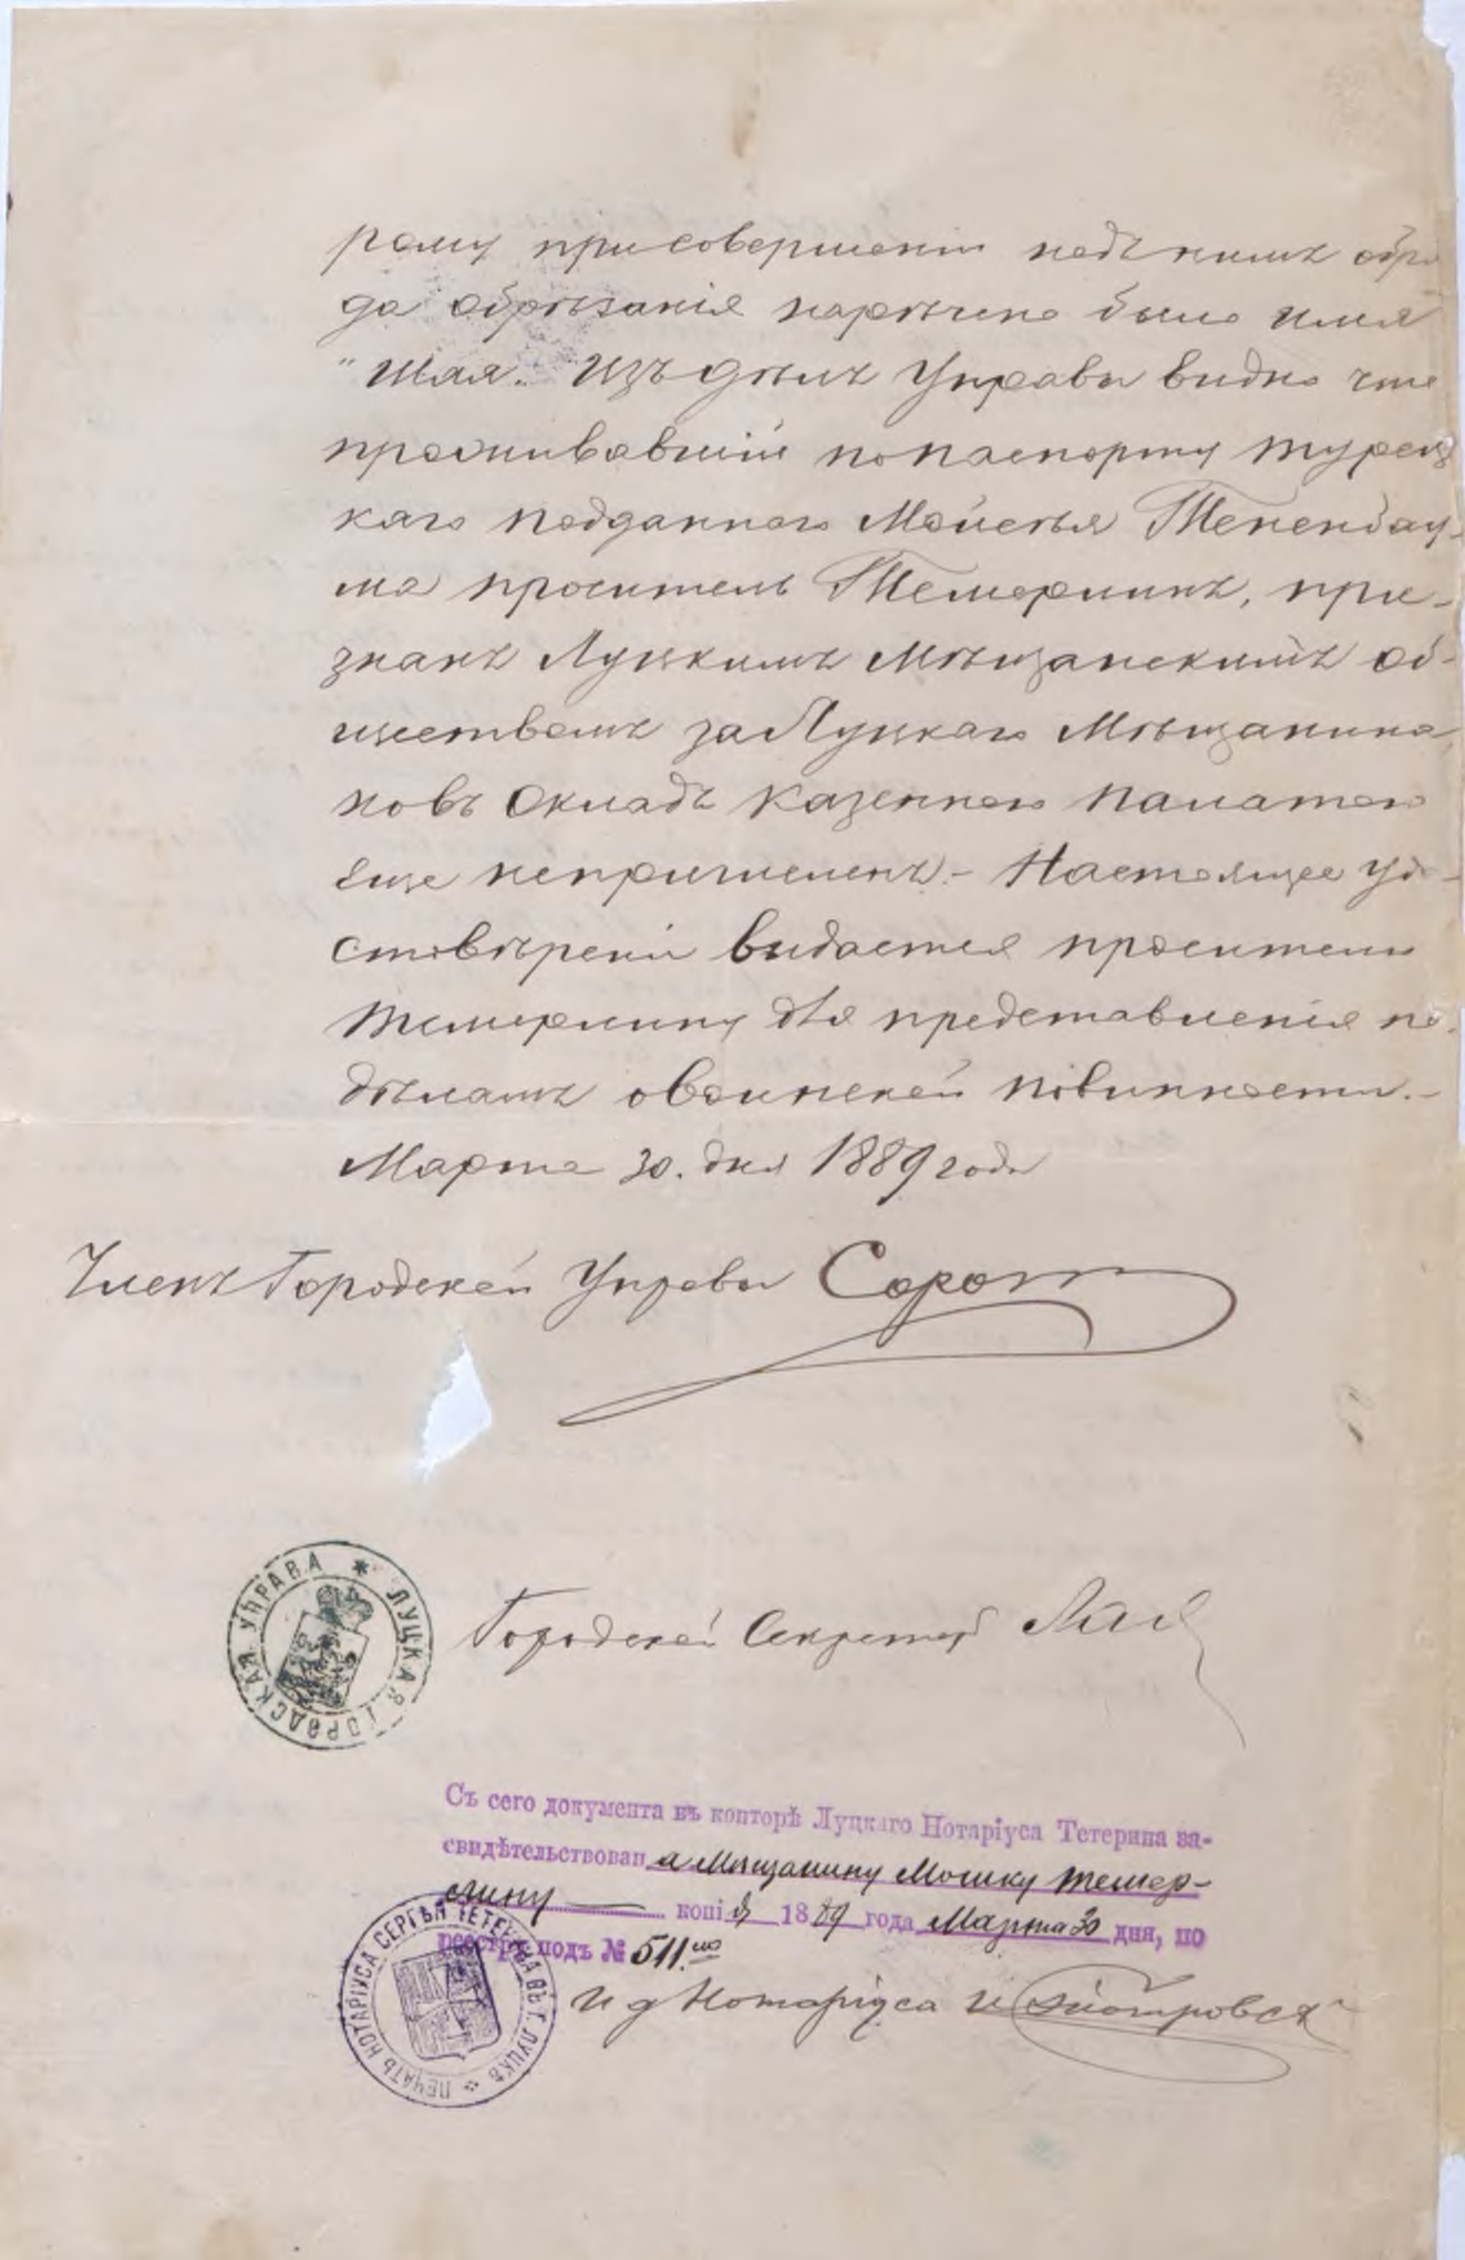 рому присовершеніи надъ нимъ обря
да обрѣзанія нарѣчено было имя
"Шая". Изъ дѣлъ Управы видно что
проживавшій попаспорту турец
каго подданного Мойсея Тененбау-
ма проситель Темерлинъ, при-
знанъ Луцкимъ Мѣщанскимъ об-
ществомъ за Луцкаго Мѣщанина,
новъ Окладъ Казенною Палатою
еще непричисленъ.- Настоящее удо-
стовѣреніи выдается просителю
Темерлину для представленія по
дѣламъ овоинской повинности.-
Марта 30. дня 1889 года
Членъ Городской Управы Сорот
Городской Секретарь
ЛУЦКАЯ ГОРОДСКАЯ УПРАВА *
Съ сего документа въ конторѣ Луцкаго Нотаріуса Тетерина за-
свидѣтельствована Мѣщанину Мошку Темер-
лину копія 1889 года Марта 30 дня, по
реестру подъ № 511.
И д Нотаріуса
ПЕЧАТЬ НОТАРІУСА СЕРГѢЯ ТЕТЕРИНА ВЪ Г. ЛУЦКѢ *